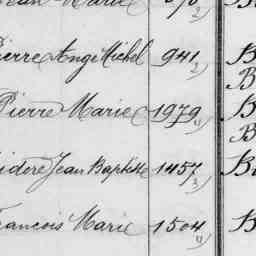 Jean Marie
Pierre Ange Michel 941 2) B
B
Pierre Marie 1979 B
B
Isidore Jean Baptiste 1457 3) B
François Marie 1504 B